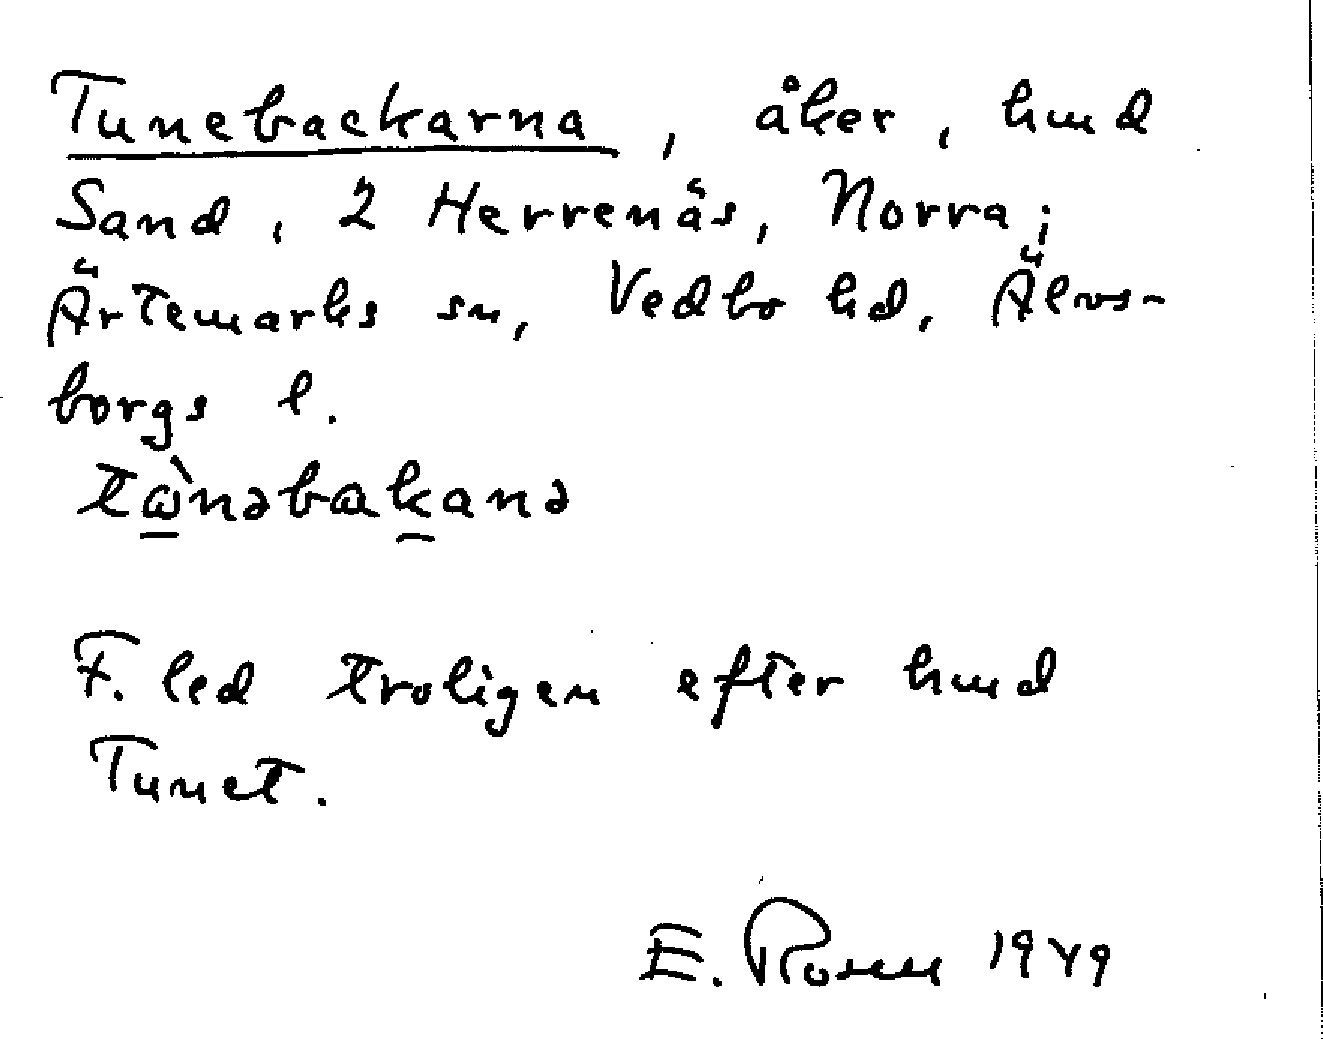 Tunebackarna, åker, hmd
Sand, 2 Herrenäs, Norra;
Ärtemarks sn, Vedbo hd, Älvs-
borgs l.
tὼnəbakanə
F. led troligen efter hmd
Tunet.
E. Rosen 1949